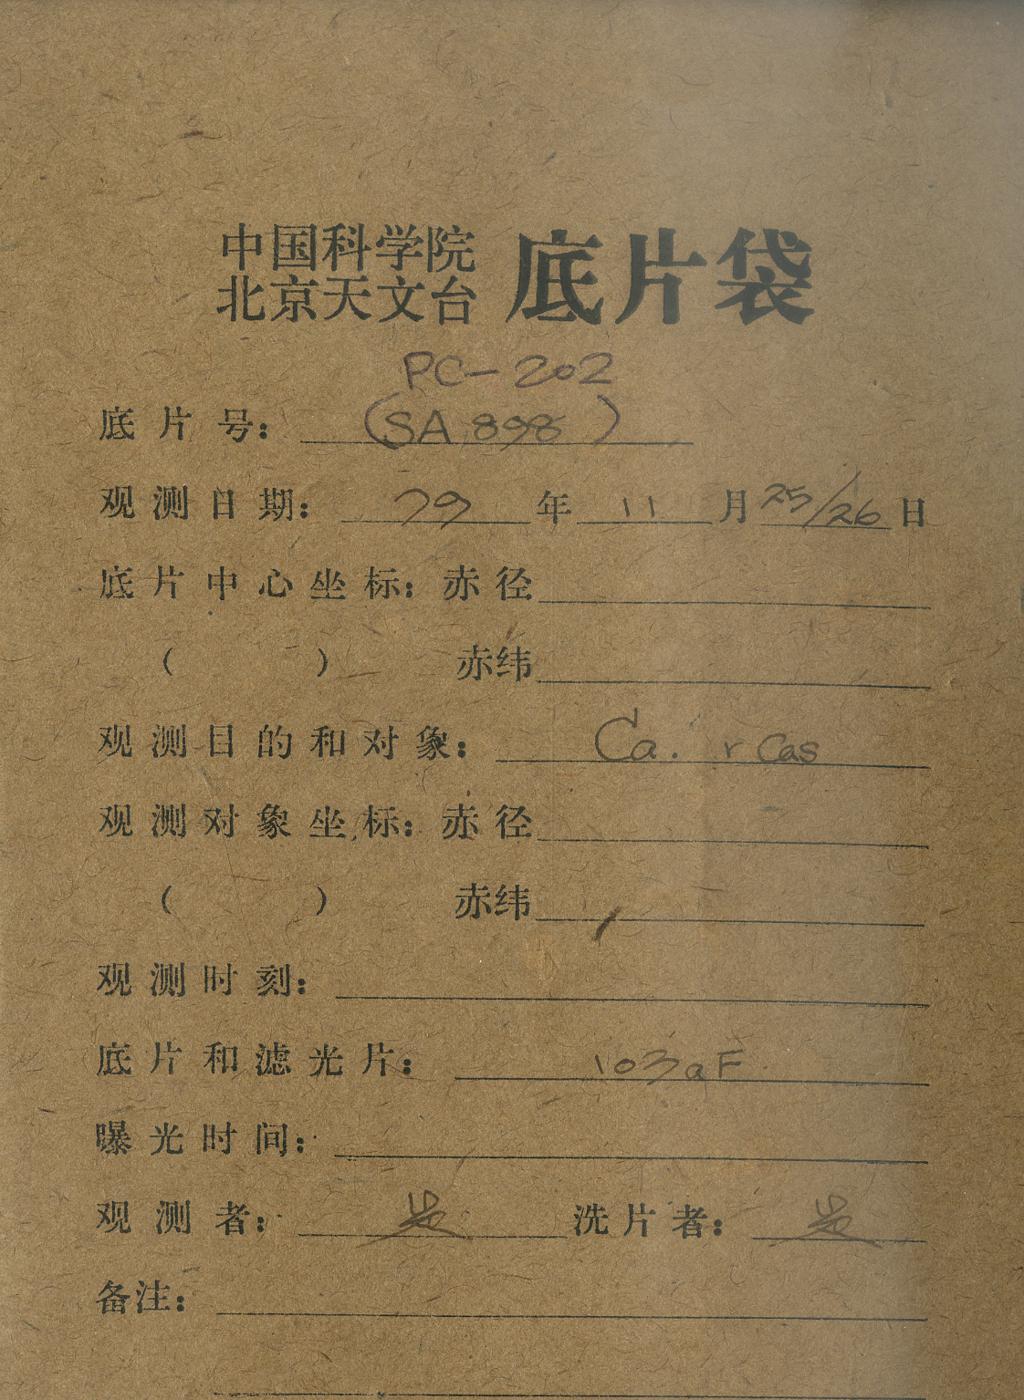 中国科学院
北京天文台 底片袋
PC-202
底片号: (SA 898)
观测日期: 79年 11月 25/26日
底片中心坐标: 赤径
( ) 赤纬
观测目的和对象: Ca. r Cas
观测对象坐标: 赤径
( ) 赤纬
观测时刻:
底片和滤光片: 103aF
曝光时间:
观测者: 洗片者:
备注: